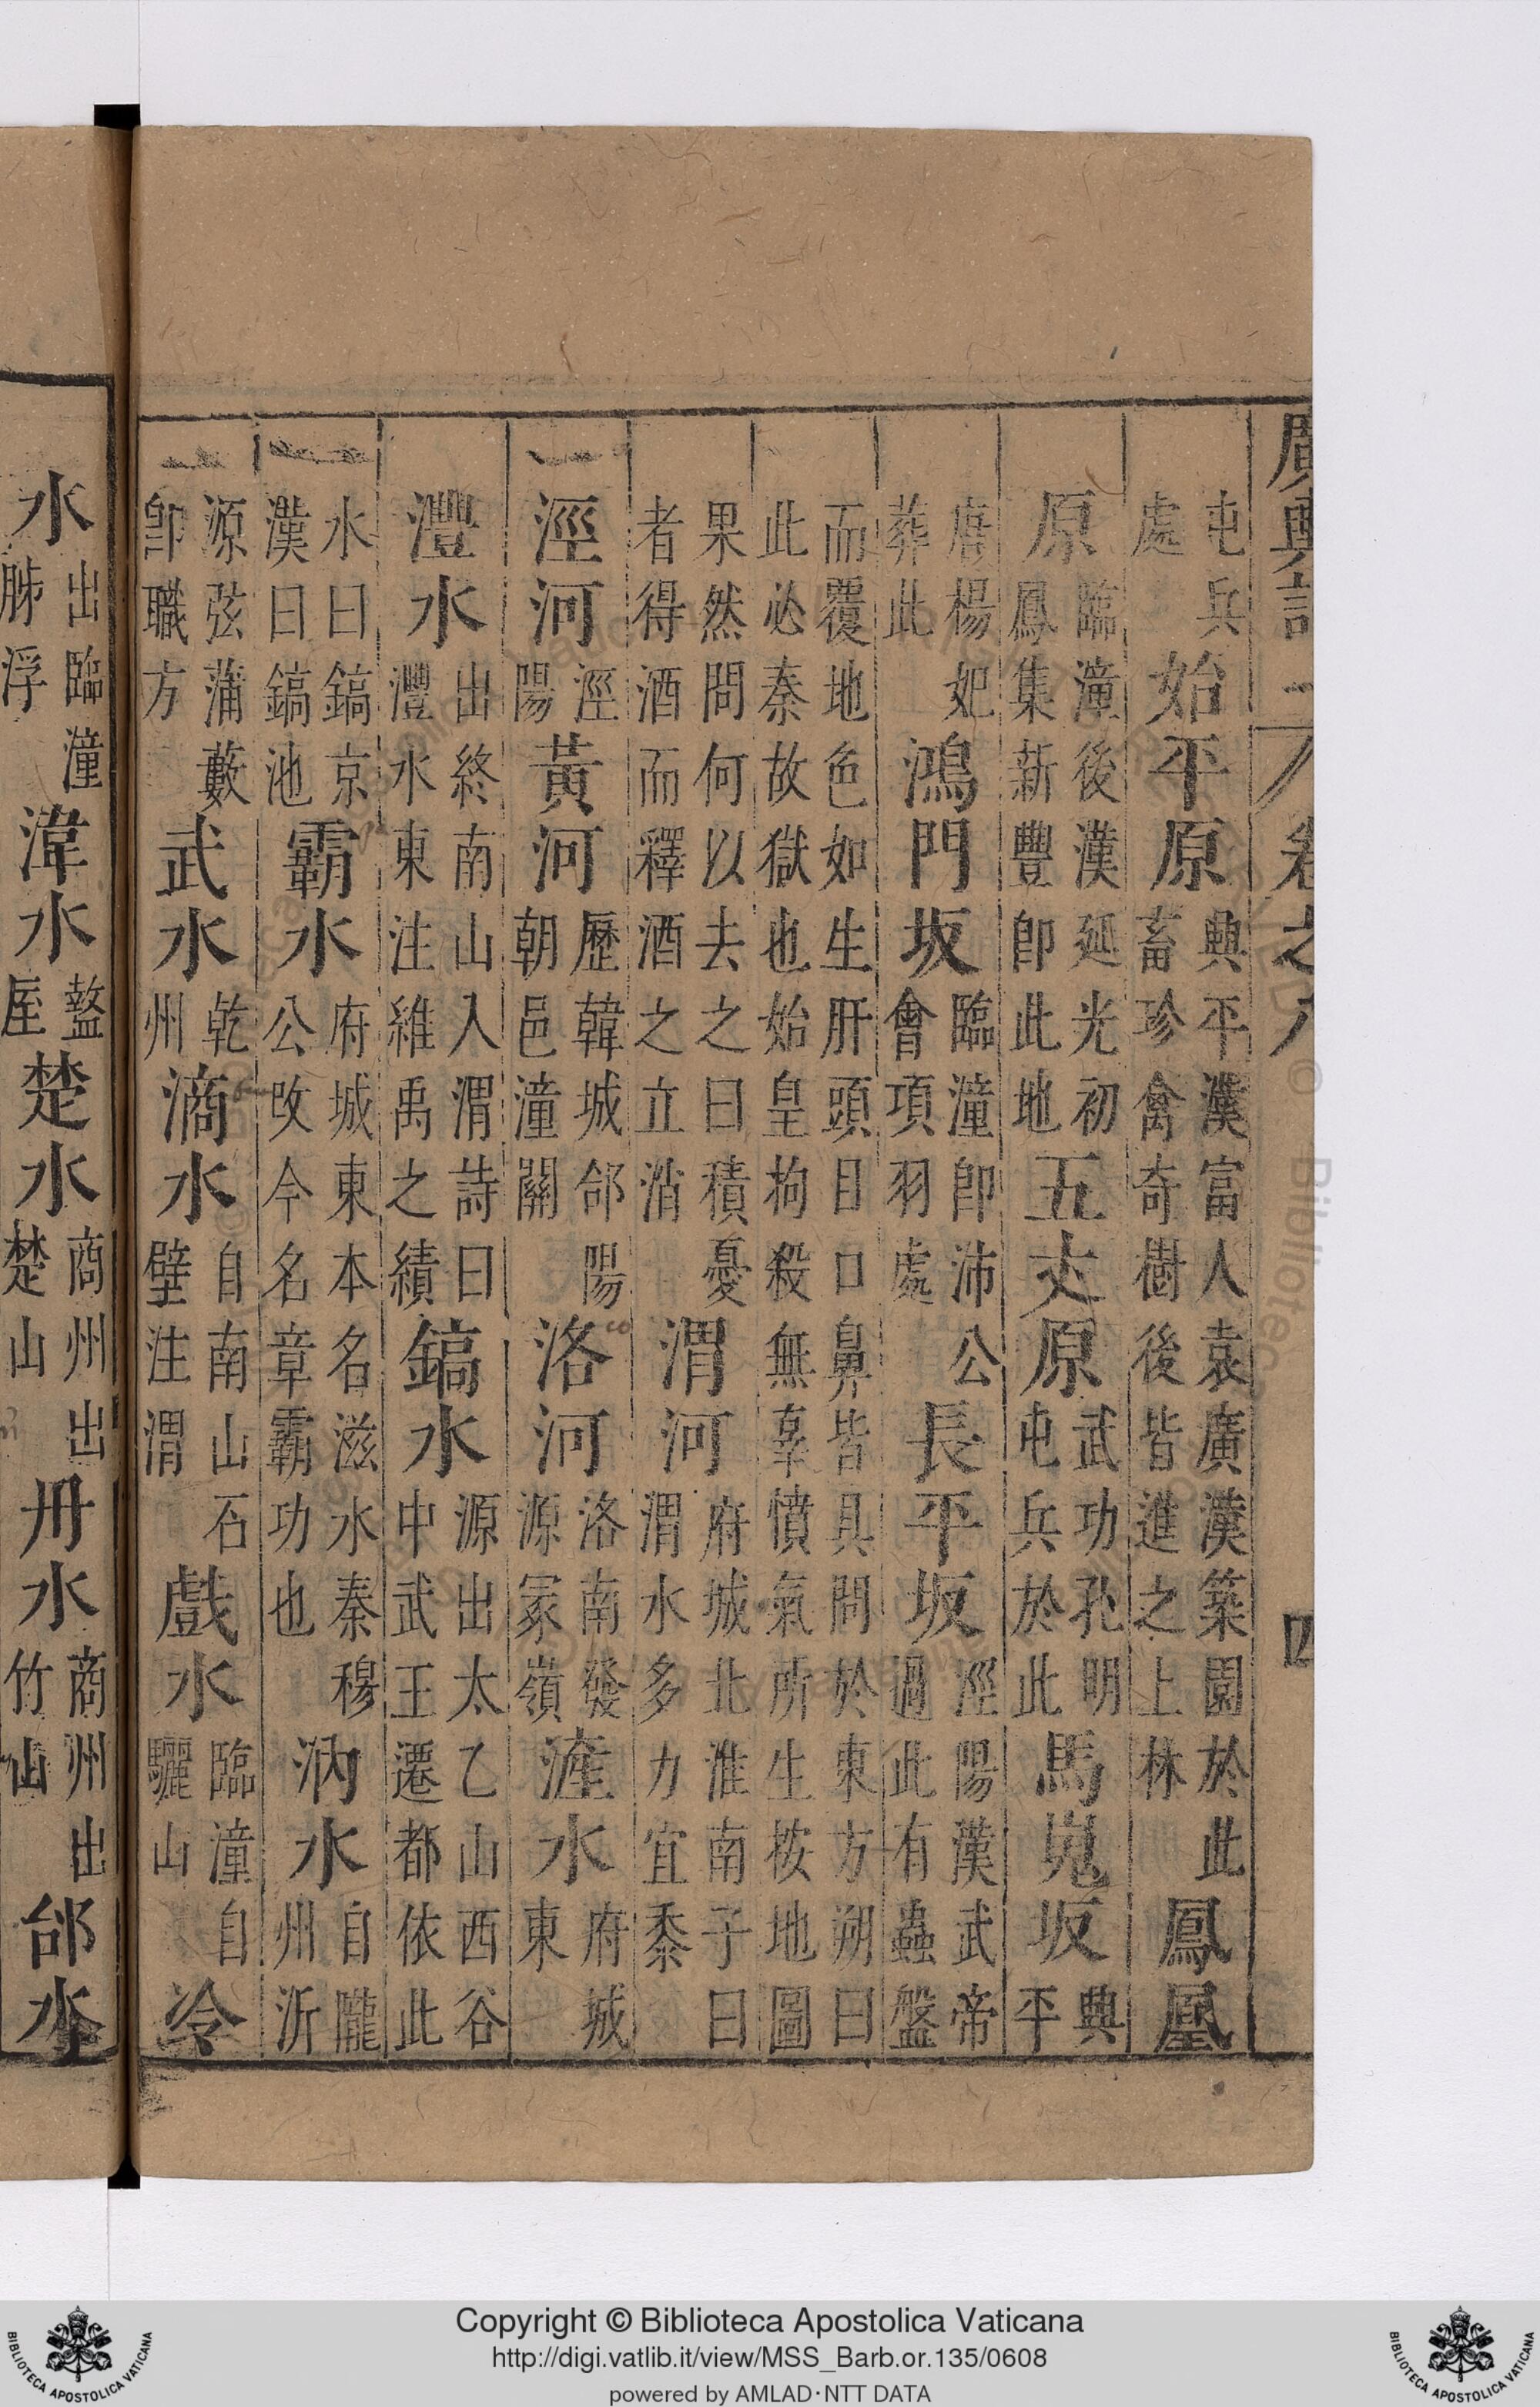 廣輿記 卷之八 四
屯兵處 始平原 興平漢富人袁廣漢築園於此畜珍禽奇樹後皆進之上林 鳳凰
原 臨潼後漢延光初鳳集新豐卽此地 五丈原 武功孔明屯兵於此 馬嵬坂 興平
唐楊妃葬此 鴻門坂 臨潼卽沛公會項羽處 長平坂 涇陽漢武帝過此有蟲盤
而覆地色如生肝頭目口鼻皆具問於東方朔曰此必秦故獄也始皇拘殺無辜憤氣所生按地圖
果然問何以去之曰積憂者得酒而釋酒之立消 渭河 府城北淮南子曰渭水多力宜黍
涇河 涇陽 黃河 歷韓城郃陽朝邑潼關 洛河 洛南發源冢嶺 滻水 府城東
灃水 出終南山入渭詩曰灃水東注維禹之績 鎬水 源出太乙山西谷中武王遷都依此
水曰鎬京漢曰鎬池 霸水 府城東本名滋水秦穆公改今名章霸功也 汭水 自隴州沂
源弦蒲藪卽職方 武水 乾州 滴水 自南山石壁注渭 戲水 臨潼自驪山 冷
水 出臨潼胏浮 湋水 盩厔 楚水 商州出楚山 丹水 商州出竹山 邰水
Copyright © Biblioteca Apostolica Vaticana
http://digi.vatlib.it/view/MSS_Barb.or.135/0608
powered by AMLAD·NTT DATA
BIBLIOTECA APOSTOLICA VATICANA
BIBLIOTECA APOSTOLICA VATICANA